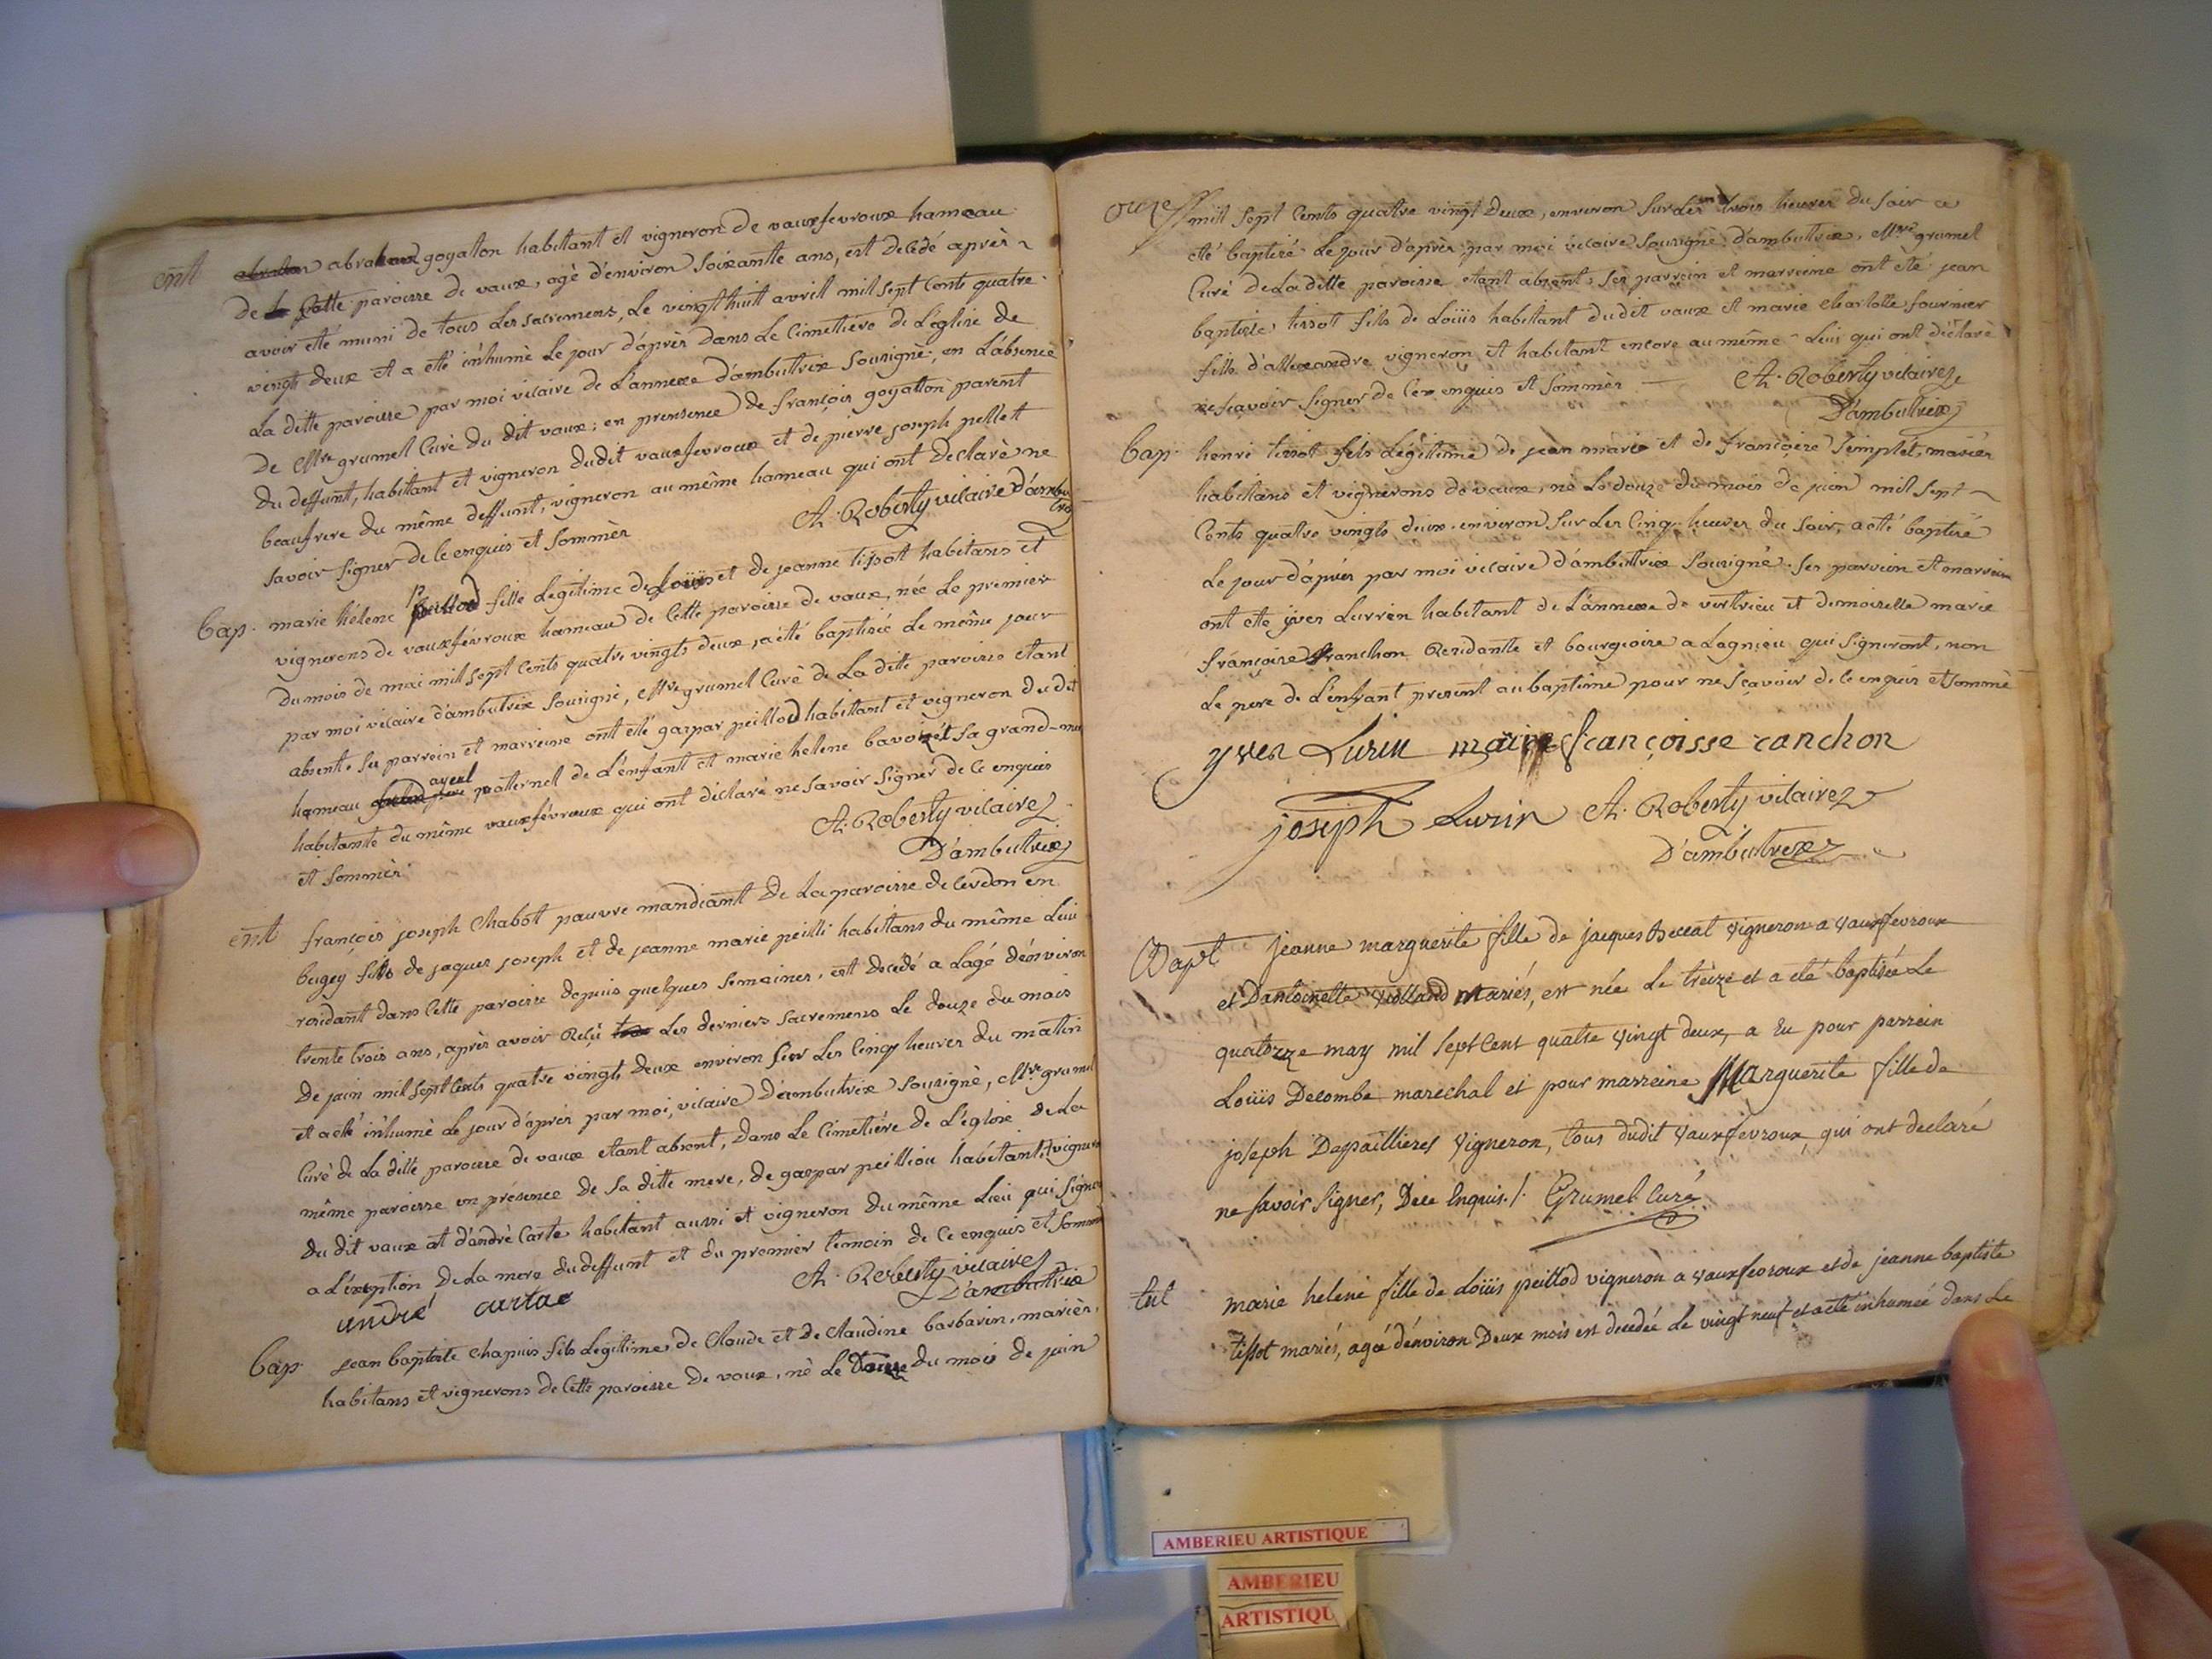 ent abraham goyatton habitant et vigneron de vauxfevroux hameau
de Cette paroisse de vaux, agé d'environ soixante ans, est decédé après
avoir été muni de tous Les sacremens, Le vingt huit avrill mil sept Cents quatre
vingts deux et a été inhumé Le jour d'après dans Le Cimetiére de L'église de
La ditte paroisse par moi vicaire de L'annexe d'ambutrix soussigné, en L'absence
De Mre grumell Curé du dit vaux; en presence de françois goyatton parent
du deffunt, habitant et vigneron dudit vauxfevroux et de pierre joseph pellett
beaufrere du même deffunt, vigneron au même hameau qui ont declaré ne
savoir signer de Ce enquis et sommés A. Roberty vicaire D'ambu
trix
bap. marie hélene peillod fille Legitime de Loüis et de jeanne tissot habitans et
vignerons de vauxfévroux hameau de Cette paroisse de vaux, née Le premier
du mois de mai mil sept Cents quatre vingts deux, a été baptisée Le même jour
par moi vicaire d'ambutrix sousigné, Mre grumel Curé de La ditte paroisse etant
absent. ses parrein et marreine ont été gaspar peillod habittant et vigneron du dit
hameau ayeul paternel de L'enfant et marie helene bavozet sa grand-mere
habitante du même vauxfévroux qui ont déclaré ne savoir signer de Ce enquis
et sommés A. Roberty vicaire
D'ambuttrix
ent françois joseph Chabot pauvre mandiant De La paroisse de Cerdon en
bugey fils de jaques joseph et de jeanne marie peilli habitans du même Lieu
residant dans Cette paroisse depuis quelques semaines, est decedé a Lagé d'énviron
trente trois ans, après avoir Reçü Les derniers sacremens Le douze du mois
de juin mil sept Cents quatre vingts deux environ sur Les Cinq heures du matin
et a été inhumé Le jour d'après par moi, vicaire D'ambutrix sousigné, Mre grumel
Curé de La ditte paroisse de vaux etant absent, dans Le Cimetiére de L'église de La
même paroisse en présence de sa ditte mere, de gaspar peilliou habitant et vigneron
du dit vaux et d'andré Carte habitant aussi et vigneron du même Lieu qui signe
a L'exeption de La mere du deffunt et du premier temoin de Ce enquis et sommé
andré cartae A. Roberty vicaire
D'ambuttrix
bap. jean baptiste Chapuis fils Legitime de Claude et de Claudine barbarin, mariés,
habitans et vignerons de Cette paroisse de vaux, né Le Douze du mois de juin
onze mill sept Cents quatre vingt Deux, environ sur Les trois heures du soir a
été baptisé Le jour d'après, par moi vicaire sousigné d'ambuttrix, Mre grumel
Curé de La ditte paroisse etant absent, ses parrein et marreine ont été jean
baptiste tissot fils de Loüis habitant dudit vaux et marie Charlotte fournier
fille d'allexandre vigneron et habitant encore au même Lieu qui ont déclaré
ne sçavoir signer de Ce enquis et sommés A. Roberty vicaire
D'ambuttrix
bap. henri tissot fils Légitime de jean marie et de françoise simplet, mariés
habitans et vignerons de vaux, né Le douze du mois de juin mil sept
Cents quatre vingts deux environ sur Les Cinq heures du soir, a été baptisé
Le jour d'après par moi vicaire d'ambuttrix sousigné. ses parrein et marreine
ont été yves Lurrin habitant de L'annexe de vertrieu et demoiselle marie
françoise Ranchon Residante et bourgioise a Lagnieu qui signeront, non
Le pere de L'enfant present au baptême pour ne sçavoir de Ce enquis et sommé
yves Lurin maire françoisse ranchon
joseph Lurin A. Roberty vicaire
D'ambutrix
Bapt jeanne marguerite fille de jacques Beccat vigneron a vauxfevroux
et D'antoinette violland mariés, est née Le treize et a été baptisée Le
quatorze may mil sept Cent quatre vingt deux, a Eu pour parrein
Loüis Decombe marechal et pour marreine Marguerite fille de
joseph Depaillieres vigneron, tous dudit vauxfevroux, qui ont declaré
ne savoir signer, De ce Enquis./. Grumel Curé
marie helene fille de Loüis peillod vigneron a vauxfevroux et de jeanne baptiste
tissot mariés, agée d'environ Deux mois est decedée Le vingt neuf et a été inhumée dans Le
AMBERIEU ARTISTIQUE
AMBERIEU
ARTISTIQU